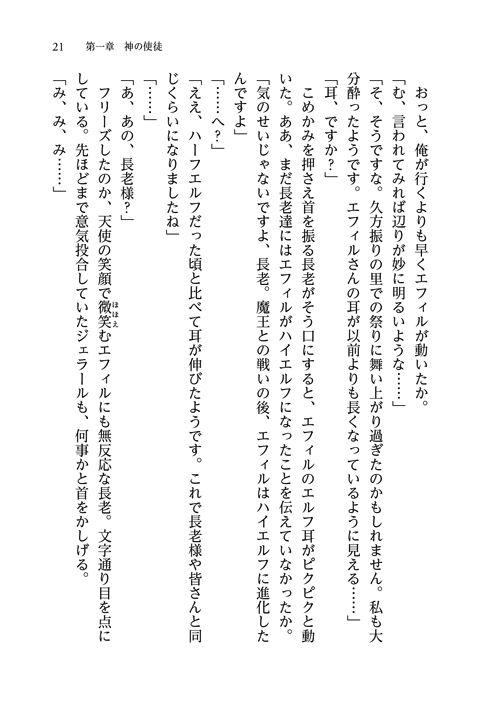 21　第一章　神の使徒
　おっと、俺が行くよりも早くエフィルが動いたか。
「む、言われてみれば辺りが妙に明るいような……」
「そ、そうですな。久方振りの里での祭りに舞い上がり過ぎたのかもしれません。私も大
分酔ったようです。エフィルさんの耳が以前よりも長くなっているように見える……」
「耳、ですか？」
　こめかみを押さえ首を振る長老がそう口にすると、エフィルのエルフ耳がピクピクと動
いた。ああ、まだ長老達にはエフィルがハイエルフになったことを伝えていなかったか。
「気のせいじゃないですよ、長老。魔王との戦いの後、エフィルはハイエルフに進化した
んですよ」
「……へ？」
「ええ、ハーフエルフだった頃と比べて耳が伸びたようです。これで長老様や皆さんと同
じくらいになりましたね」
「……」
「あ、あの、長老様？」
　フリーズしたのか、天使の笑顔で微笑むエフィルにも無反応な長老。文字通り目を点に
ほほえ
している。先ほどまで意気投合していたジェラールも、何事かと首をかしげる。
「み、み、み……」